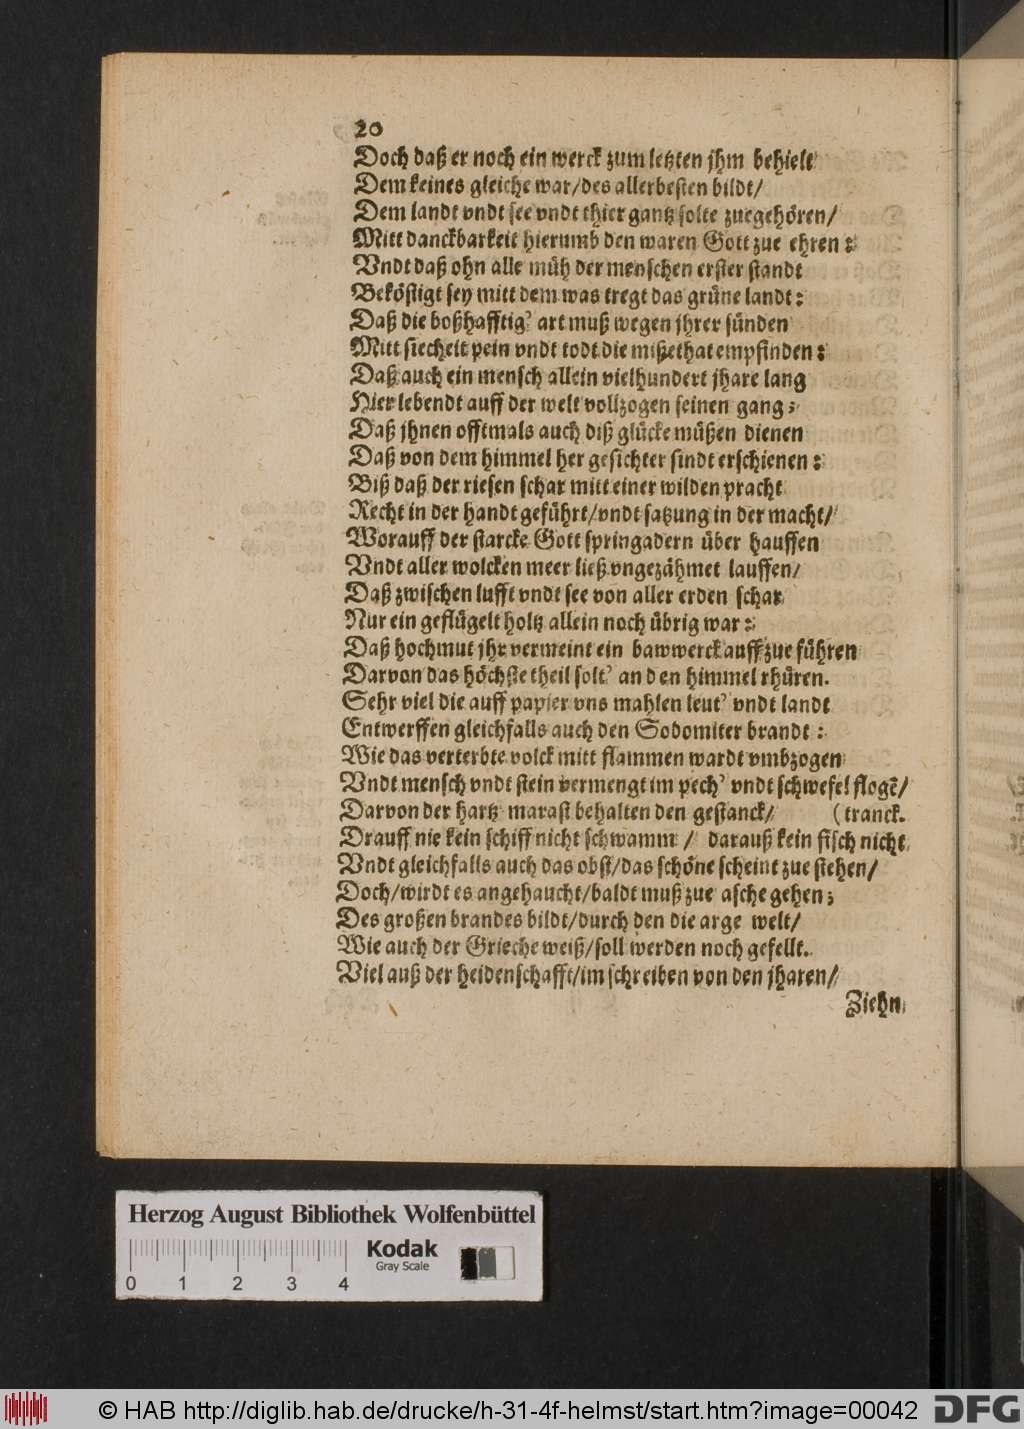 20
Doch daß er noch ein werck zum letzten jhm behielt
Dem keines gleiche war/des allerbesten bildt/
Dem landt vndt see vndt thier gantz solte zuegehören/
Mitt danckbarkeit hierumb den waren Gott zue ehren:
Vndt daß ohn alle müh der menschen erster standt
Beköstigt sey mitt dem was tregt das grüne landt:
Daß die boßhafftig' art muß wegen jhrer sünden
Mitt siecheit pein vndt todt die mißethat empfinden:
Daß auch ein mensch allein vielhundert jhare lang
Hier lebendt auff der welt vollzogen seinen gang;
Daß jhnen offtmals auch diß glücke müßen dienen
Daß von dem himmel her gesichter sindt erschienen:
Biß daß der riesen schar mitt einer wilden pracht
Recht in der handt geführt/vndt satzung in der macht/
Worauff der starcke Gott springadern über hauffen
Vndt aller wolcken meer ließ vngezähmet lauffen/
Daß zwischen lufft vndt see von aller erden schar
Nur ein geflügelt holtz allein noch übrig war:
Daß hochmut jhr vermeint ein bawwerck auff zue führen
Darvon das höchste theil solt' an den himmel rhüren.
Sehr viel die auff papier vns mahlen leut' vndt landt
Entwerffen gleichfalls auch den Sodomiter brandt:
Wie das verterbte volck mitt flammen wardt vmbzogen
Vndt mensch vndt stein vermengt im pech' vndt schwefel flogē/
Darvon der hartz marast behalten den gestanck/ (tranck.
Drauff nie kein schiff nicht schwamm/ darauß kein fisch nicht
Vndt gleichfalls auch das obst/das schöne scheint zue stehen/
Doch/wirdt es angehaucht/baldt muß zue asche gehen;
Des großen brandes bildt/durch den die arge welt/
Wie auch der Grieche weiß/soll werden noch gefellt.
Viel auß der heidenschafft/im schreiben von den jharen/
Ziehn
Herzog August Bibliothek Wolfenbüttel
Kodak
Gray Scale
0 1 2 3 4
© HAB http://diglib.hab.de/drucke/h-31-4f-helmst/start.htm?image=00042
DFG